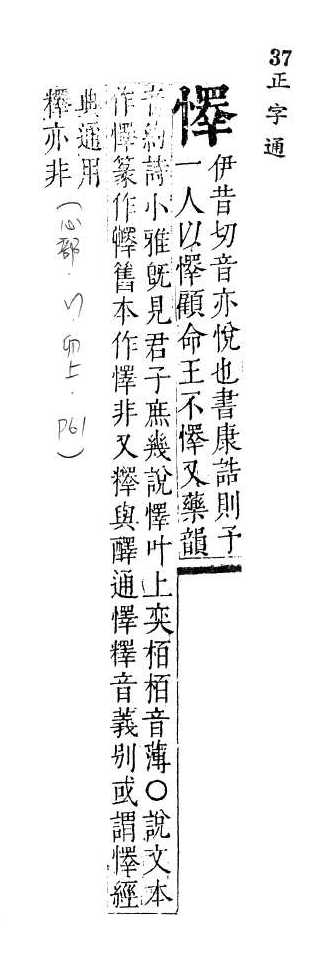 37 正字通
懌
伊昔切音亦悅也書康誥則予
一人以懌顧命王不懌又藥韻
音約詩小雅旣見君子庶幾說懌叶上奕栢栢音薄○說文本
作懌篆作懌舊本作懌非又釋與醳通懌釋音義别或謂懌經
典通用
釋亦非
(心部. 上. P61)